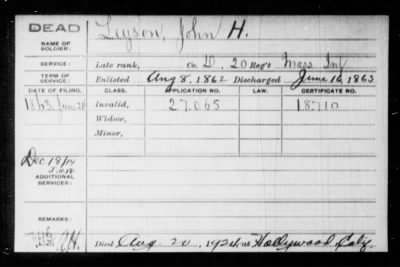 DEAD
NAME OF SOLDIER: Leyson, John H.
SERVICE: Late rank, Co. D, 20 Reg't Mass Inf
TERM OF SERVICE: Enlisted Aug 8, 1862 Discharged June 16, 1863
DATE OF FILING. CLASS. APPLICATION NO. LAW. CERTIFICATE NO.
1863 June 20 Invalid, 27.065 18710
Widow,
Minor,
Dec 18/14
ADDITIONAL SERVICES:
REMARKS:
Died Aug. 20, 1924, at Hollywood Calif.